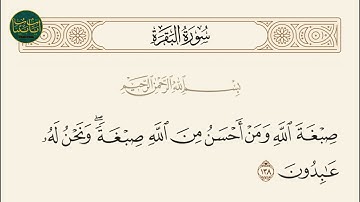 سُورَةُ البَقَرَةِ
بِسْمِ اللَّهِ الرَّحْمَٰنِ الرَّحِيمِ
صِبْغَةَ اللَّهِ وَمَنْ أَحْسَنُ مِنَ اللَّهِ صِبْغَةً ۖ وَنَحْنُ لَهُۥ
عَٰبِدُونَ ١٣٨